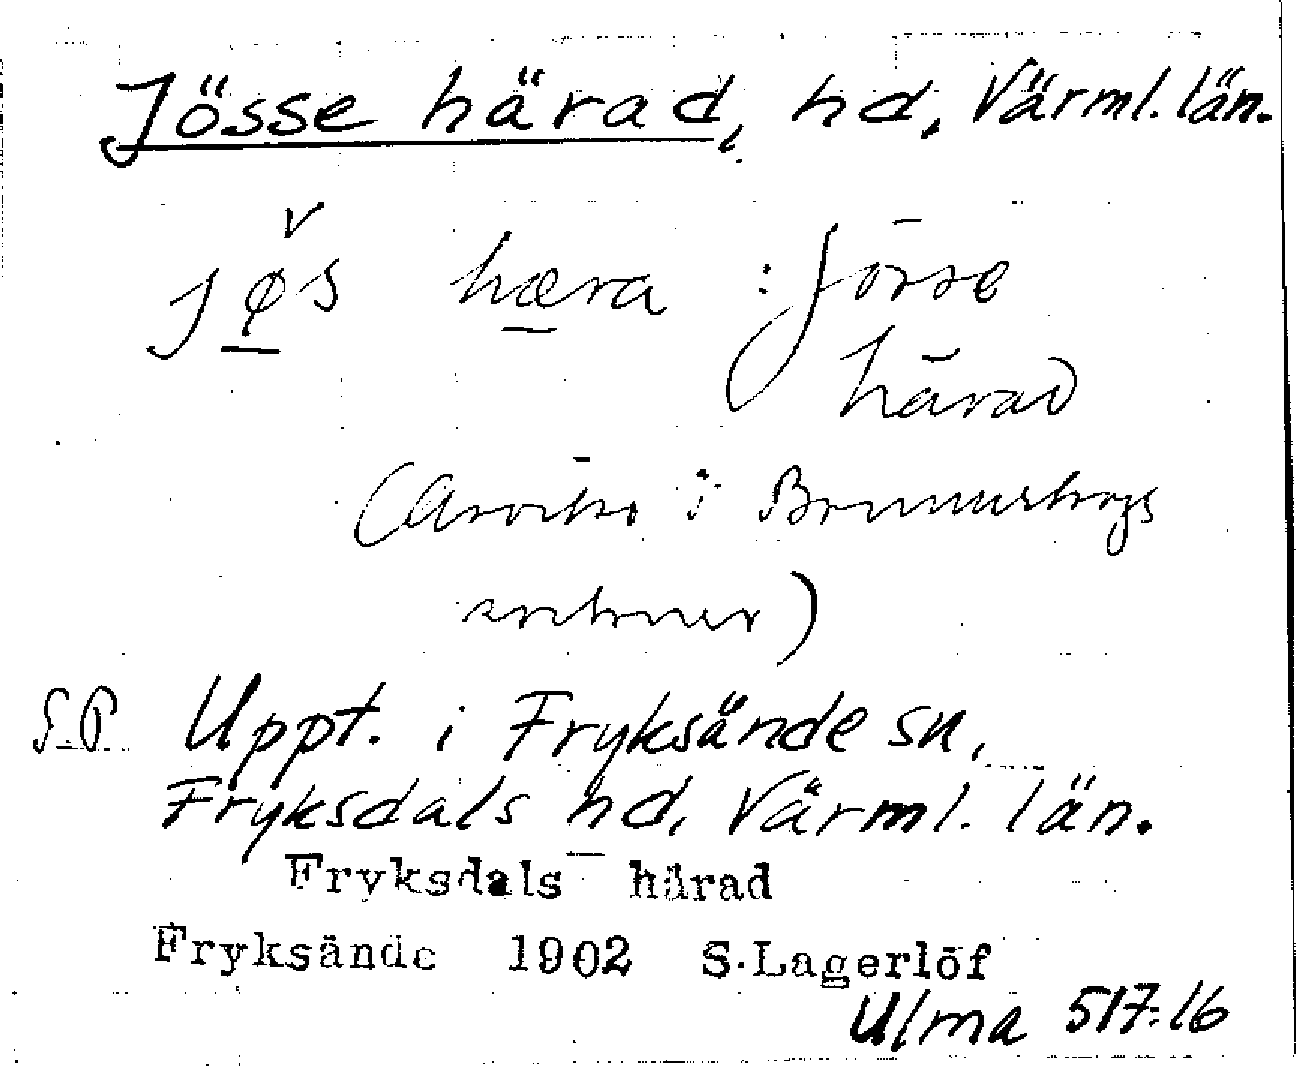 Jösse härad, hd, Värml. län.
jøs hæra : Jösse
härad
(Arvika i Brunnskogs
socknar)
Uppt. i Fryksände sn,
Fryksdals hd, Värml. län.
Fryksdals härad
Fryksände 1902 S.Lagerlöf
Ulma 517:16